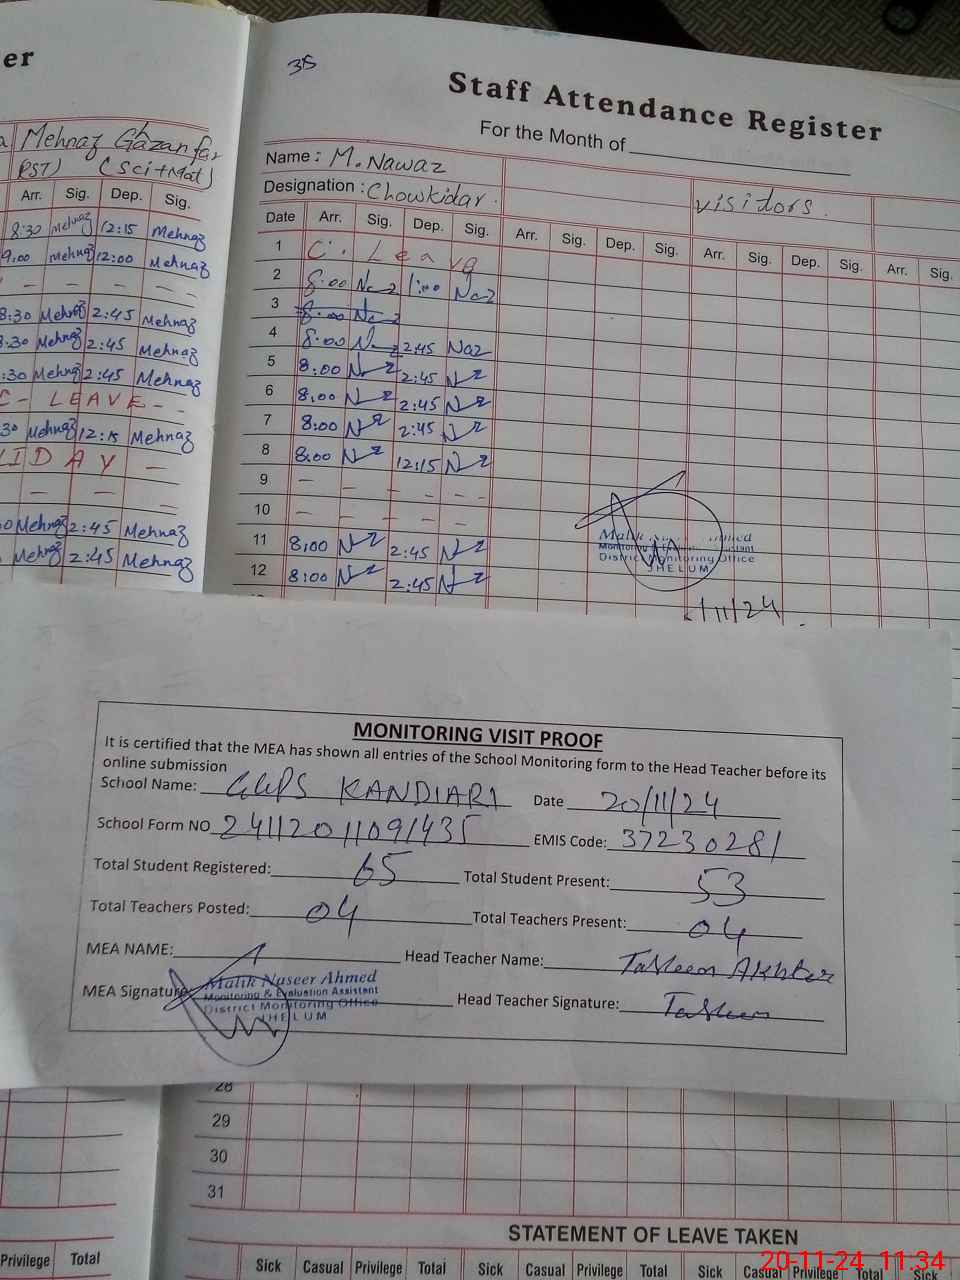 er
35
Staff Attendance Register
For the Month of
a Mehnaz Gazanfar
PST) (Sci+Mat)
Arr. Sig. Dep. Sig.
8:30 Mehnaz 12:15 Mehnaz
9:00 Mehnaz 12:00 Mehnaz
- - - -
8:30 Mehnaz 2:45 Mehnaz
8:30 Mehnaz 2:45 Mehnaz
:30 Mehnaz 2:45 Mehnaz
C- LEAVE - -
30 Mehnaz 12:15 Mehnaz
LIDAY -
- - -
0 Mehnaz 2:45 Mehnaz
Mehnaz 2:45 Mehnaz
Name : M. Nawaz
Designation : Chowkidar. visidors.
Date Arr. Sig. Dep. Sig. Arr. Sig. Dep. Sig. Arr. Sig. Dep. Sig. Arr. Sig.
1 C. Leave
2 8:00 Naz 1:00 Naz
3 8:00 Naz
4 8:00 Naz 2:45 Naz
5 8:00 Nz 2:45 Nz
6 8:00 Nz 2:45 Nz
7 8:00 Nz 2:45 Nz
8 8:00 Nz 12:15 Nz
9 - - - - -
10 - - - - -
11 8:00 Nz 2:45 Nz
12 8:00 Nz 2:45 Nz
Malik med
Monitoring & stant
District Monitoring Office
JHELUM
/11/24
MONITORING VISIT PROOF
It is certified that the MEA has shown all entries of the School Monitoring form to the Head Teacher before its
online submission
School Name: GGPS KANDIARI Date 20/11/24
School Form NO 24112011091435 EMIS Code: 37230281
Total Student Registered: 65 Total Student Present: 53
Total Teachers Posted: 04 Total Teachers Present: 04
MEA NAME: Head Teacher Name: Tasleem Akhtar
Malik Naseer Ahmed
Monitoring & Evaluation Assistant
District Monitoring Office
JHELUM
MEA Signature: Head Teacher Signature: Tasleem
28
29
30
31
STATEMENT OF LEAVE TAKEN
Privilege Total Sick Casual Privilege Total Sick Casual Privilege Total Sick Casual Privilege Total Sick
20-11-24 11:34